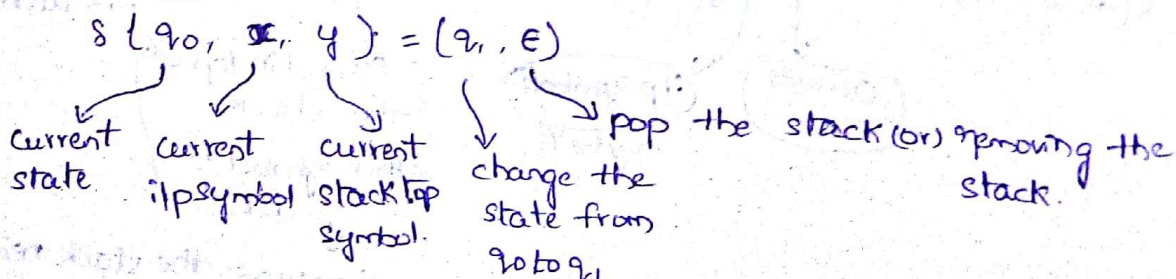 δ(q0, x, y) = (q1, ε)
current state
current i/p symbol
current stack top symbol.
change the state from q0 to q1
pop the stack (or) removing the stack.